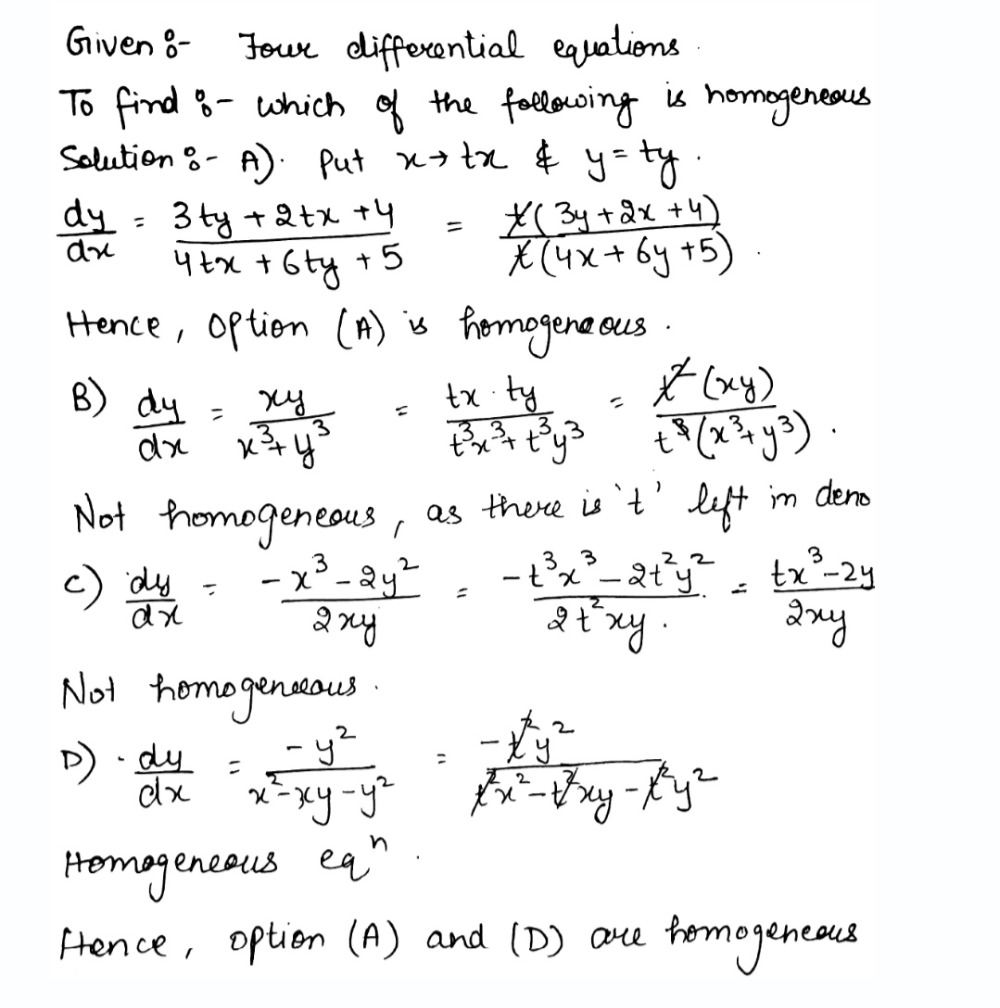 Given :- Four differential equations.
To find :- which of the following is homogeneous
Solution :- A). Put x→tx & y=ty.
dy/dx = (3ty + 2tx + 4)/(4tx + 6ty + 5) = t(3y + 2x + 4)/t(4x + 6y + 5).
Hence, option (A) is homogeneous.
B) dy/dx = xy/(x³+y³) = tx·ty/(t³x³+t³y³) = t²(xy)/t³(x³+y³).
Not homogeneous, as there is 't' left in deno
C) dy/dx = (-x³-2y²)/2xy = (-t³x³-2t²y²)/2t²xy. = (tx³-2y)/2xy
Not homogeneous.
D) · dy/dx = -y²/(x²-xy-y²) = -t²y²/(t²x²-t²xy-t²y²)
Homogeneous eqⁿ.
Hence, option (A) and (D) are homogeneous